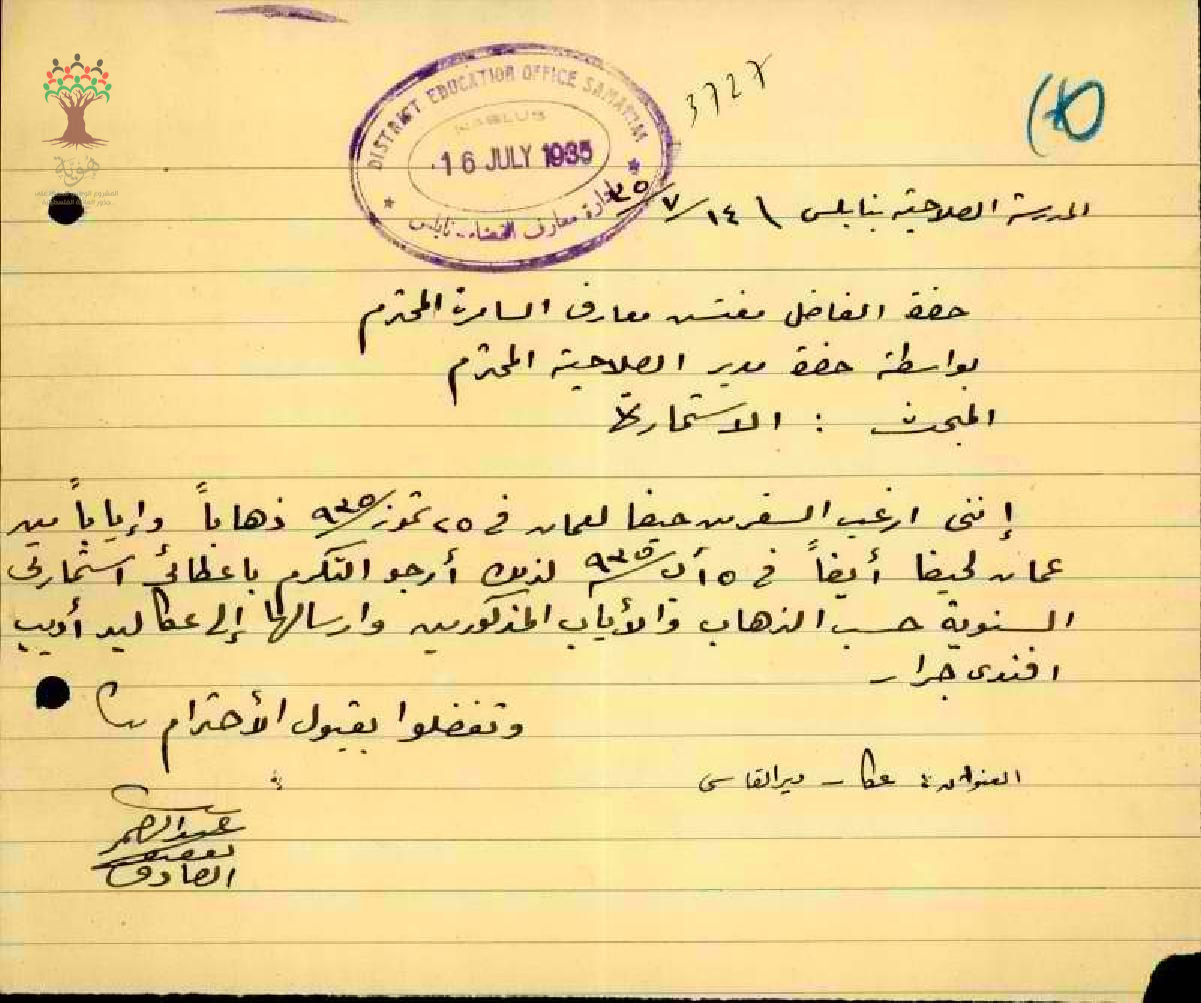 3727
DISTRICT EDUCATION OFFICE SAMARIA
NABLUS
16 JULY 1935
إدارة معارف القضاء - نابلس
هُويّة
المدرسة الصلاحية بنابلس \ ١٤/٧/٣٥
حضرة الفاضل مفتش معارف السامرة المحترم
بواسطة حضرة مدير الصلاحية المحترم
المبحث : الاستمارة
إنني ارغب السفر من حيفا لعمان في ٢٥ تموز ٩٣٥ ذهاباً وإياباً من
عمان لحيفا أيضاً في ١٥ آب ٩٣٥ لذلك أرجو التكرم باعطائي استمارتي
السنوية حسب الذهاب والأياب المذكورين وارسالها إلى عكا ليد أديب
افندي جرار
وتفضلوا بقبول الأحترام
العنوان : عكا - ديرالقاسي
عبدالصمد
الصادق